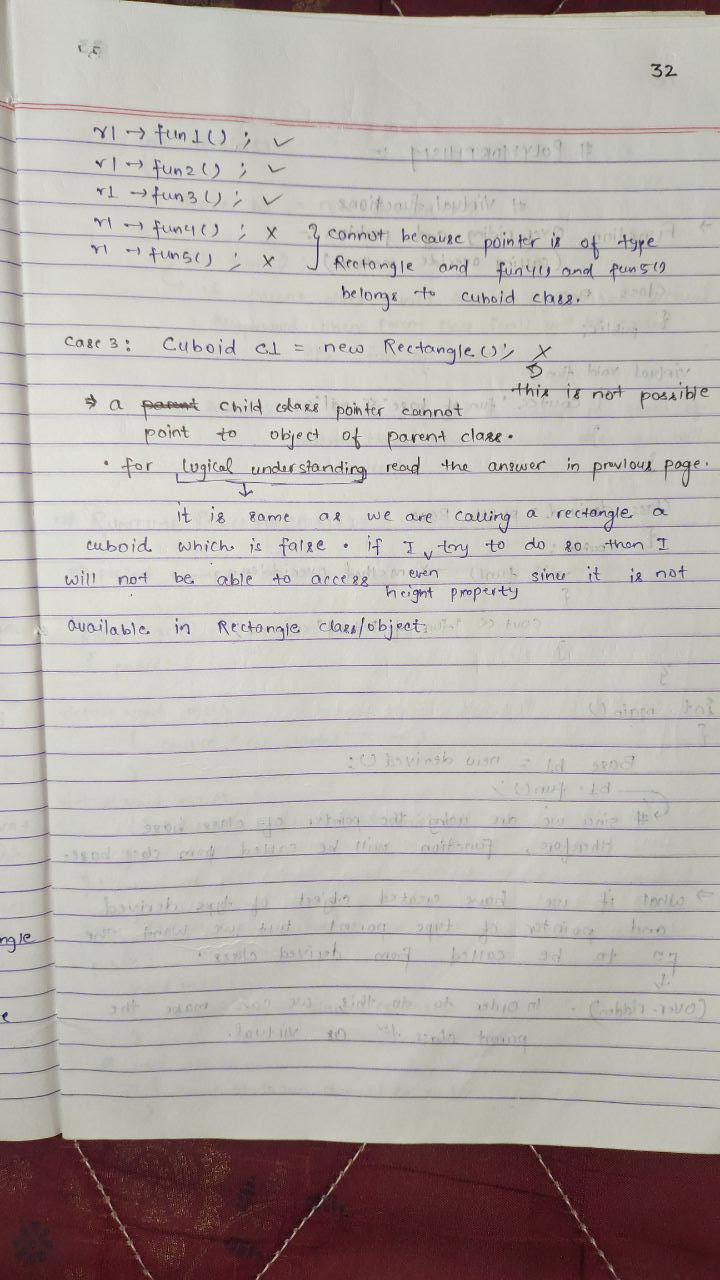 32
r1 → fun1() ; ✓
r1 → fun2() ; ✓
r1 → fun3() ; ✓
r1 → fun4() ; x } cannot because pointer is of type
r1 → fun5() ; x Rectangle and fun4() and fun5()
belongs to cuboid class.
Case 3 : Cuboid c1 = new Rectangle () ; X
this is not possible
⇒ a parent child class pointer cannot
point to object of parent class.
• for logical understanding read the answer in previous page.
it is same as we are calling a rectangle a
cuboid which is false. if I try to do so then I
will not be able to access even height property since it is not
available in Rectangle class/object.
ngle
e